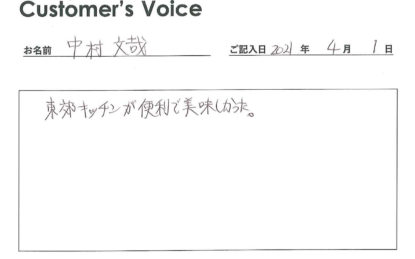 Customer's Voice
お名前 中村 文哉 ご記入日 2021 年 4 月 1 日
東郊キッチンが便利で美味しかった。